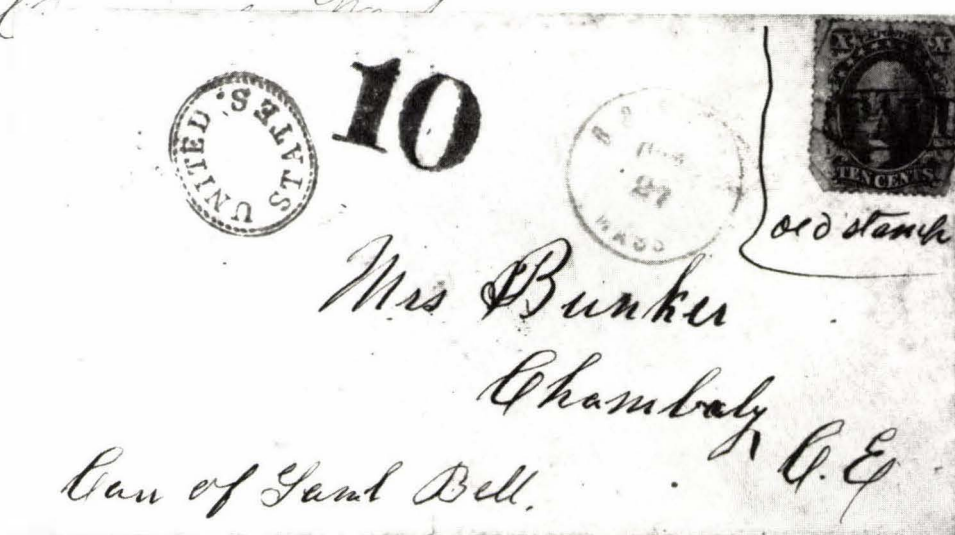 UNITED STATES.
10
27
MASS
X X
TEN CENTS
old stamp
Mrs Bunker
Chambaly
C. E
Care of Saml Bell.